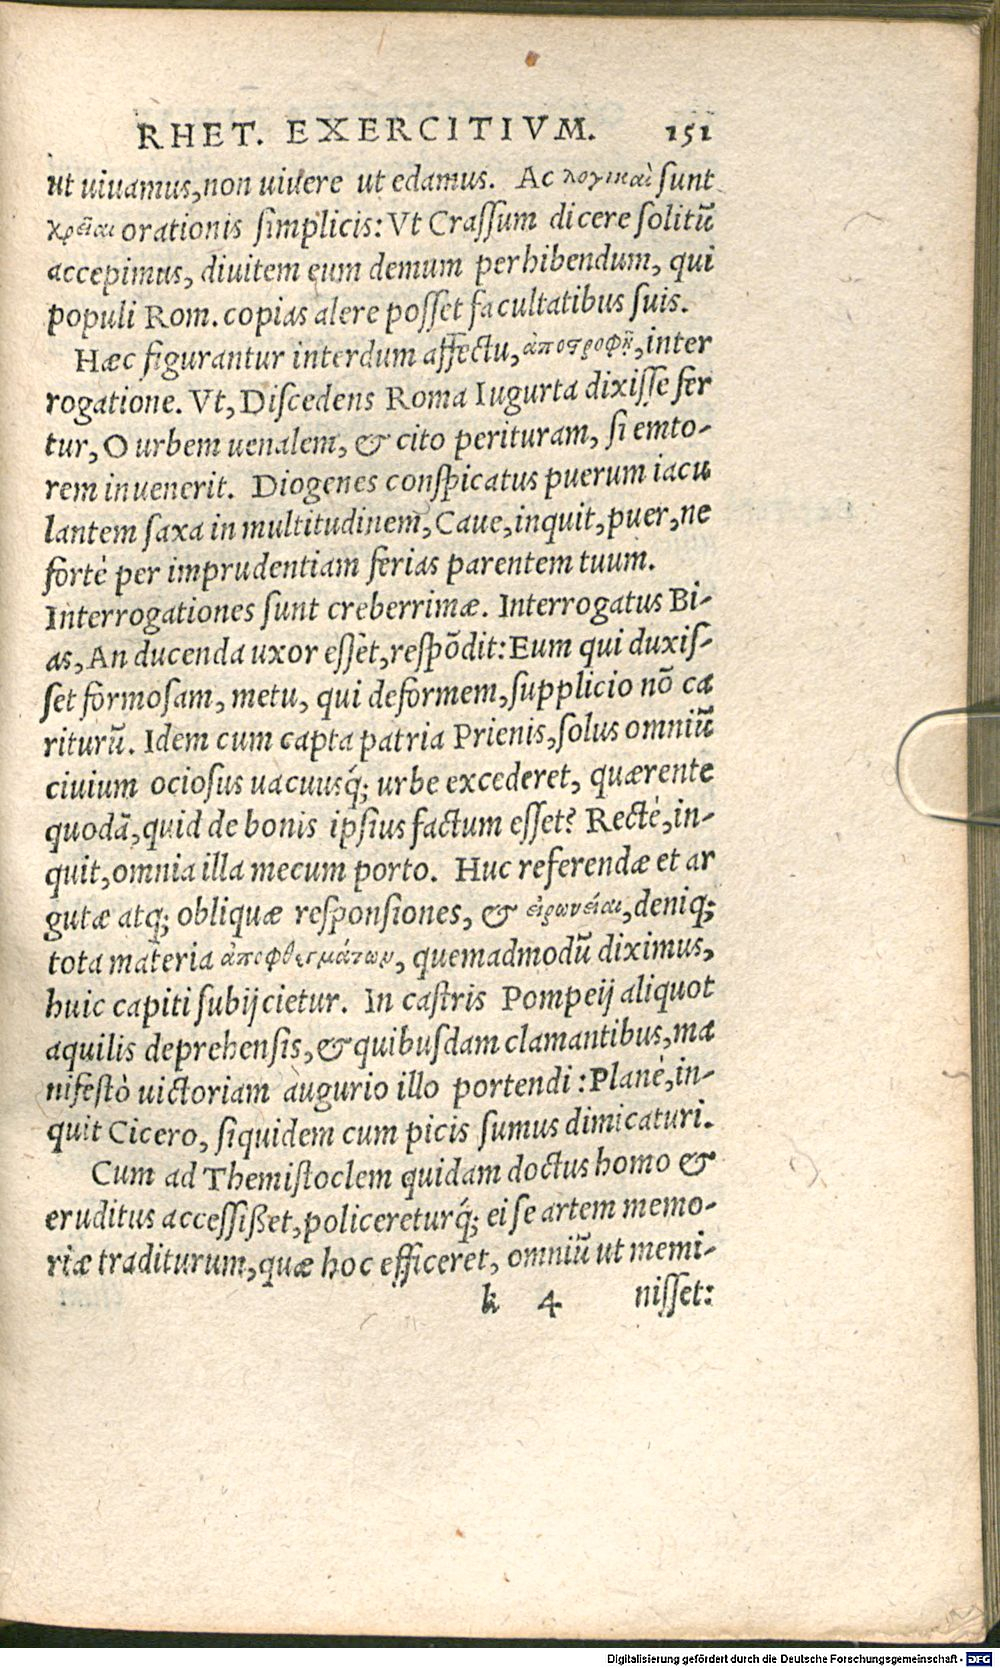 RHET. EXERCITIVM. 151
ut uiuamus, non uiuere ut edamus. Ac λογικαὶ sunt
χρεῖαι orationis simplicis: Vt Crassum dicere solitū
accepimus, diuitem eum demum perhibendum, qui
populi Rom. copias alere posset facultatibus suis.
Hæc figurantur interdum affectu, ἀποστροφῇ, inter
rogatione. Vt, Discedens Roma Iugurta dixisse fer
tur, O urbem uenalem, & cito perituram, si emto-
rem inuenerit. Diogenes conspicatus puerum iacu
lantem saxa in multitudinem, Caue, inquit, puer, ne
fortè per imprudentiam ferias parentem tuum.
Interrogationes sunt creberrimæ. Interrogatus Bi-
as, An ducenda uxor essèt, respōdit: Eum qui duxis-
set formosam, metu, qui deformem, supplicio nō ca
riturū. Idem cum capta patria Prienis, solus omniū
ciuium ociosus uacuusq́; urbe excederet, quærente
quodā, quid de bonis ipsius factum esset? Rectè, in-
quit, omnia illa mecum porto. Huc referendæ et ar
gutæ atq; obliquæ responsiones, & εἰρωνείαι, deniq;
tota materia ἀποφθεγμάτων, quemadmodū diximus,
huic capiti subijcietur. In castris Pompeij aliquot
aquilis deprehensis, & quibusdam clamantibus, ma
nifestò uictoriam augurio illo portendi: Planè, in-
quit Cicero, siquidem cum picis sumus dimicaturi.
Cum ad Themistoclem quidam doctus homo &
eruditus accessißet, policereturq́; ei se artem memo-
riæ traditurum, quæ hoc efficeret, omniū ut memi-
k 4 nisset:
Digitalisierung gefördert durch die Deutsche Forschungsgemeinschaft - DFG